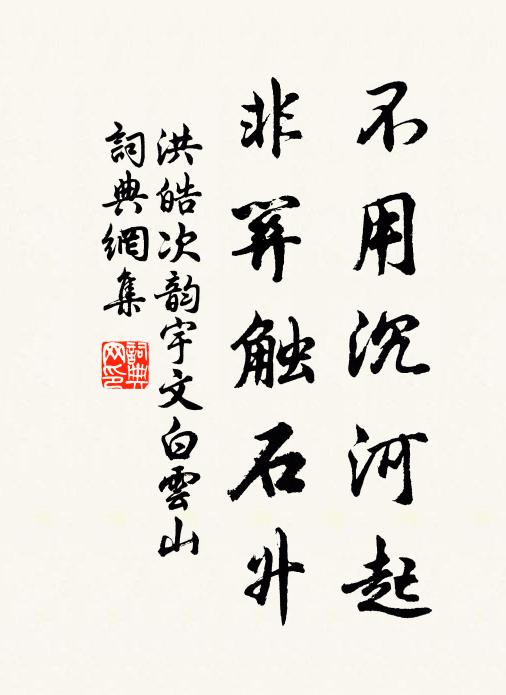 不用沉河起
非羿触石升
洪皓次韵宇文白雲山
詞典網集
詞典網印